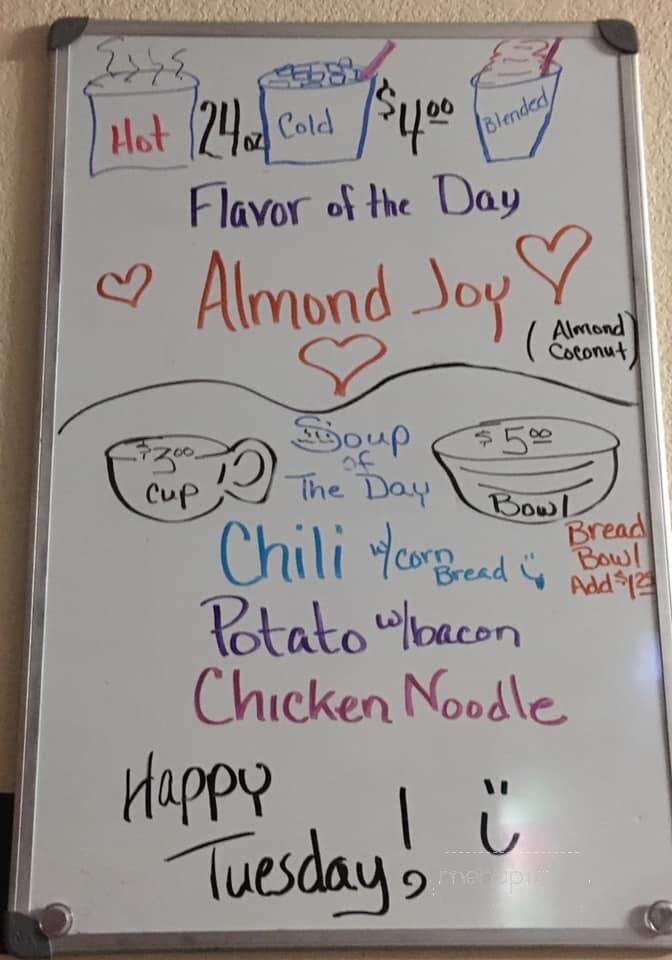 Hot 24oz Cold $4.00 Blended
Flavor of the Day
Almond Joy
(Almond
Coconut)
$3.00
Cup
Soup
of
The Day
$5.00
Bowl
Chili w/corn
Bread
Bread
Bowl
Add $1.25
Potato w/bacon
Chicken Noodle
Happy
Tuesday!